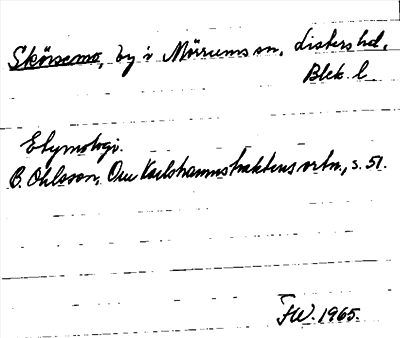 Skörsemo, by i Mörrums sn, Listers hd,
Blek. l
Etymologi.
B. Ohlsson, Om Karlshamnstraktens ortn., s. 51.
FW. 1965.